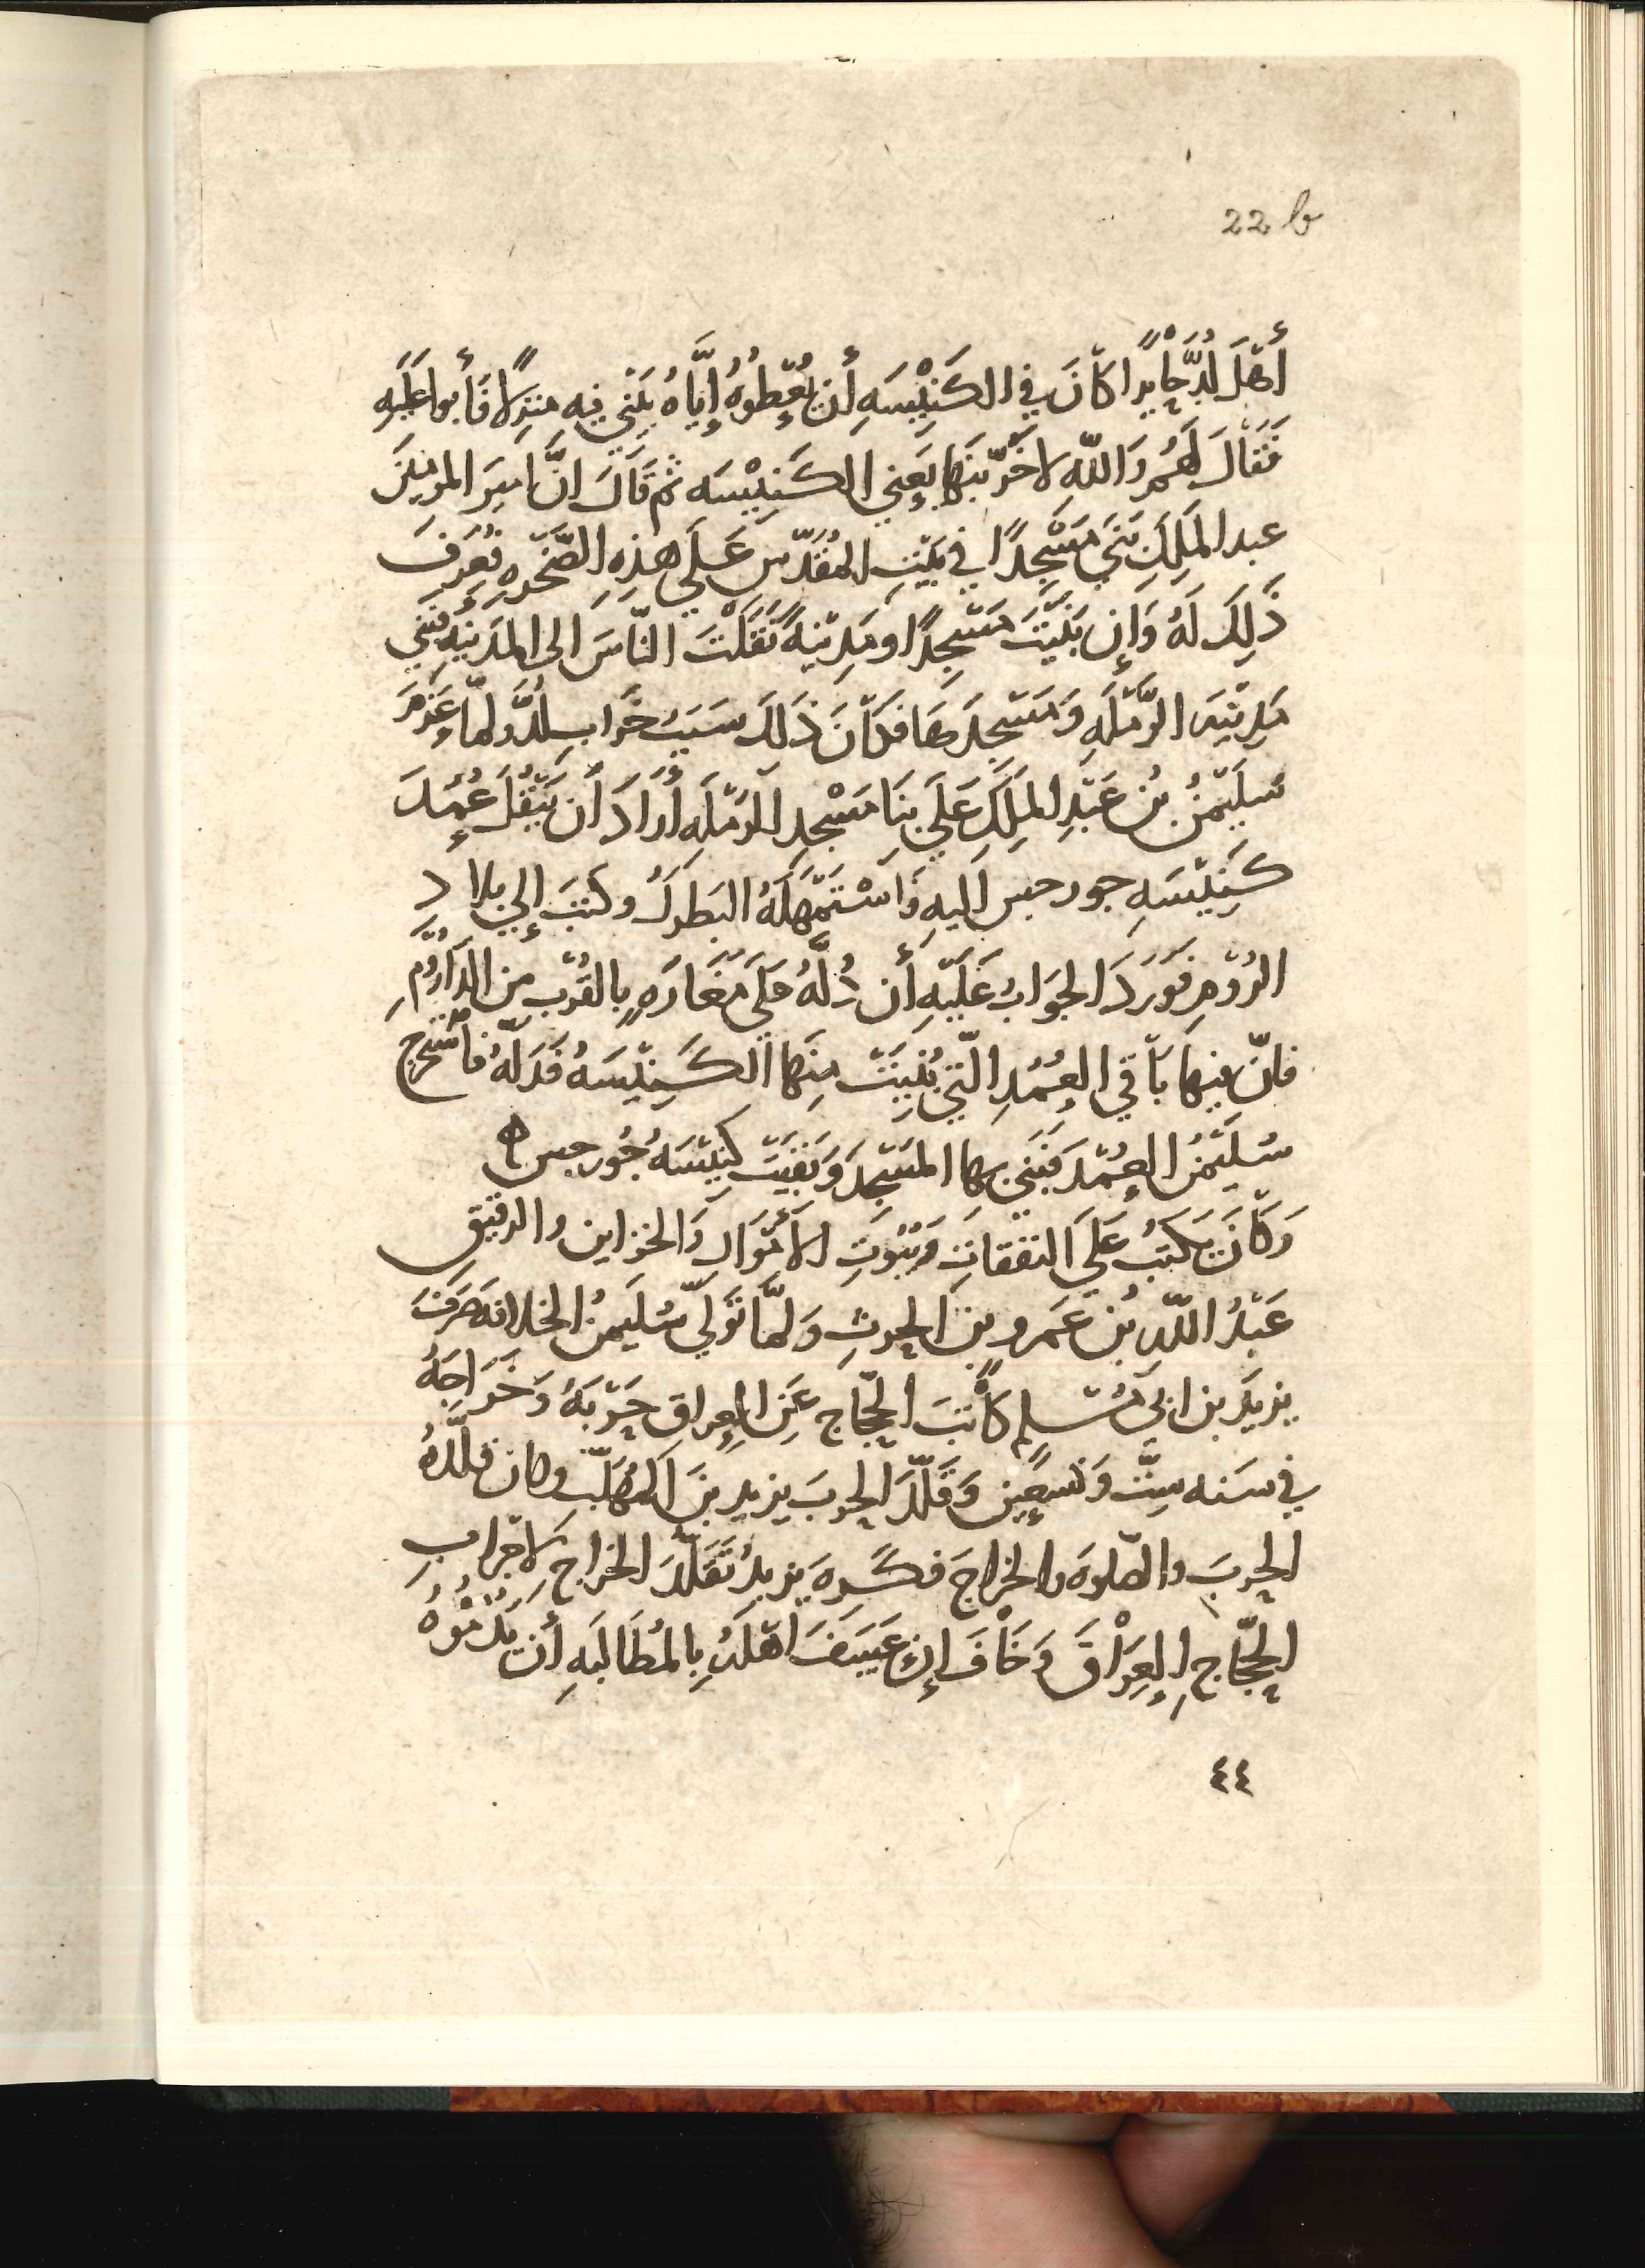 22 b
أَهْلَ لُدَّ جَايِرًا كَانَ فِي الكَنِيْسَهِ أَن يُعْطوْهُ إِيَّاهُ يَبْنِي فِيهِ مَنزِلًا فَأَبوا عَلَيْهِ
فَقَالَ لَهُم وَاللّهِ لاخَرّبَنَّهَا يَعنِي الكَنِيْسَه ثم قَالَ انَّ امِيرَ المومِنِيْنَ
عبد المَلِكِ بَنَي مَسْجِدًا في بَيْتِ المُقَدّس عَلَي هَذِهِ الصَّخْرَهِ فعُرِفَ
ذَلِكَ لَهُ وَإِن بَنَيْتَ مَسْجِدًا و مَدِيْنَهً نَقَلْتَ النّاسَ الى المَدِيْنَهِ فَبَنَي
مَدِيْنَهَ الرَّمْلَهِ وَمَسْجِدَهَا فَكَانَ ذَلِكَ سَبَبُ خَرَابِ لُدَّ ولمّا عَزَمَ
سُلَيْمَنُ بن عَبْدِ المَلِكِ عَلَي بِنَا مَسْجِدِ الرَمْلَهِ أَرَادَ أَن يَنْقُلَ عُمُدَ
كَنِيْسَهِ جورجيس اليهِ فَاسْتَمْهَلَهُ البَطركُ وكتبَ إلي بلاد
الرُوْمِ فَوَرَدَ الجَوَابُ عَلَيْهِ أَن دُلَّهُ عَلَي مَغَارَهٍ بِالقُرْبِ مِن الدَّارُوْمِ
فانّ فِيهَا بَاقي العُمُدِ الّتِي بُنِيَتْ مِنهَا الكَنِيْسَهُ فَدَلَّهُ فَاسْتَخرج
سُلَيْمَنُ العُمُدَ فبَنَي بِهَا المَسْجِدَ وَبَقِيَتْ كنِيْسَهُ جُورجيس
وَكَانَ يَكتبُ عَلَي النَفقَاتِ وَبُيُوتِ الأَمْوَالِ وَالخزاين والرقيق
عَبْدُ اللّهِ بُن عَمرو بنِ الحرثِ وَلَمَّا تَوَلّي سُلَيمنُ الخلافَه صَرفَ
يزيدَ بن ابي مُسْلِم كَاتبَ الحجّاج عَنِ العِراقِ حَرْبَهُ وَخَرَاجَهُ
في سَنه سِتّ وَتسعِين وَقَلّدَ الحربَ يزيد بنَ المُهَلّب وكان قلّدهُ
الحربَ والصّلوهَ والخراجَ فكَرِهَ يزيدُ تَقَلّدَ الخراج لاخراب
الحجّاجِ العِرَاقَ وَخَافَ إن عَسَفَ اهْلَهُ بِالمُطَالَبَهِ أن يَذمُّوهُ
٤٤